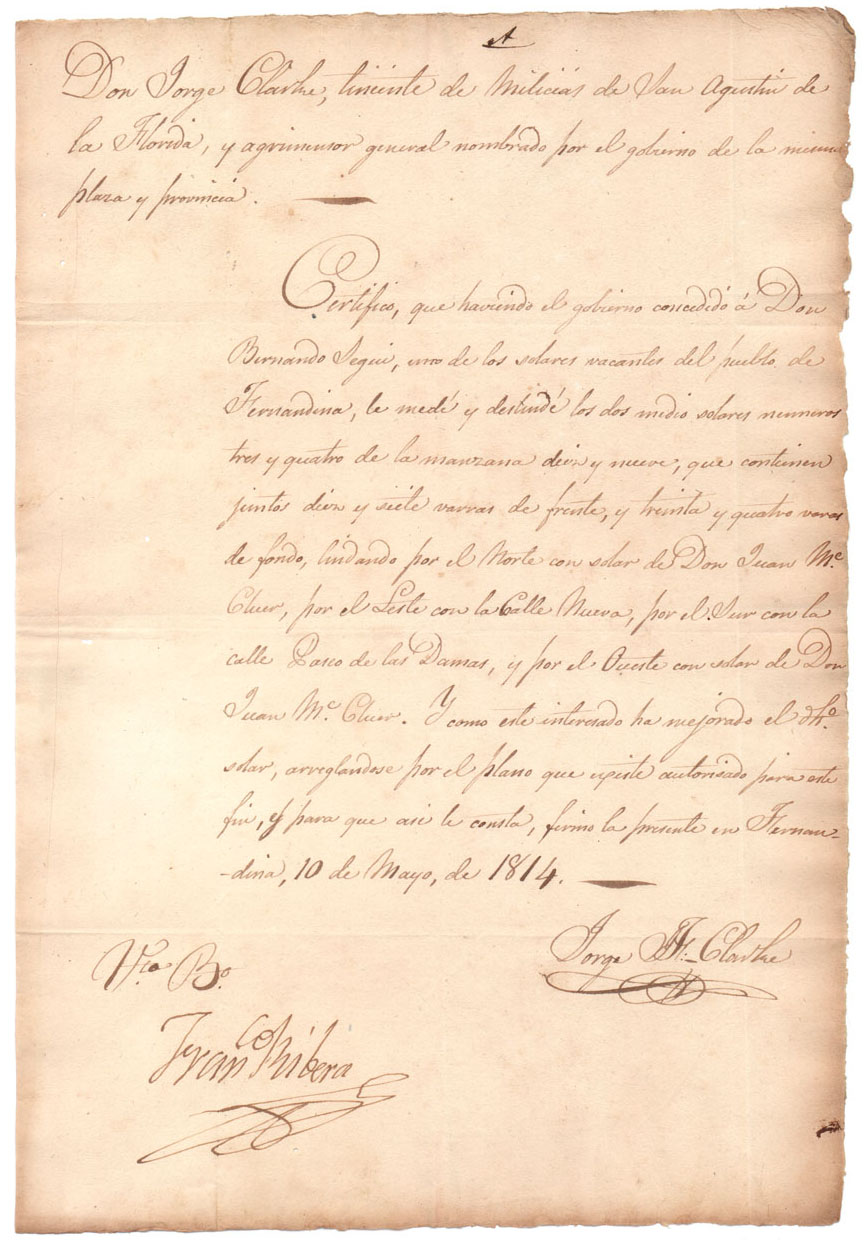 A
Don Jorge Clarke, tiniente de Milicias de San Agustin de
la Florida, y agrimensor general nombrado por el gobierno de la misma
plaza y provincia.
Certifico, que haviendo el gobierno concedido á Don
Bernando Segui, uno de los solares vacantes del pueblo de
Fernandina, le medé y deslindé los dos medio solares numeros
tres y quatro de la manzana diez y nueve, que contienen
juntos diez y siete varras de frente, y treinta y quatro varas
de fondo, lindando por el Norte con solar de Don Juan Mc.
Cluer, por el Leste con la Calle Nueva, por el Sur con la
calle Paseo de las Damas, y por el Oueste con solar de Don
Juan Mc. Cluer. Y como este interesado ha mejorado el dho.
solar, arreglandose por el plano que existe autorisado para este
fin, y para que asi le consta, firmo la presente en Fernan-
-dina, 10 de Mayo, de 1814.
Jorge J. F. Clarke
Vto. Bo.
Franco Ribera